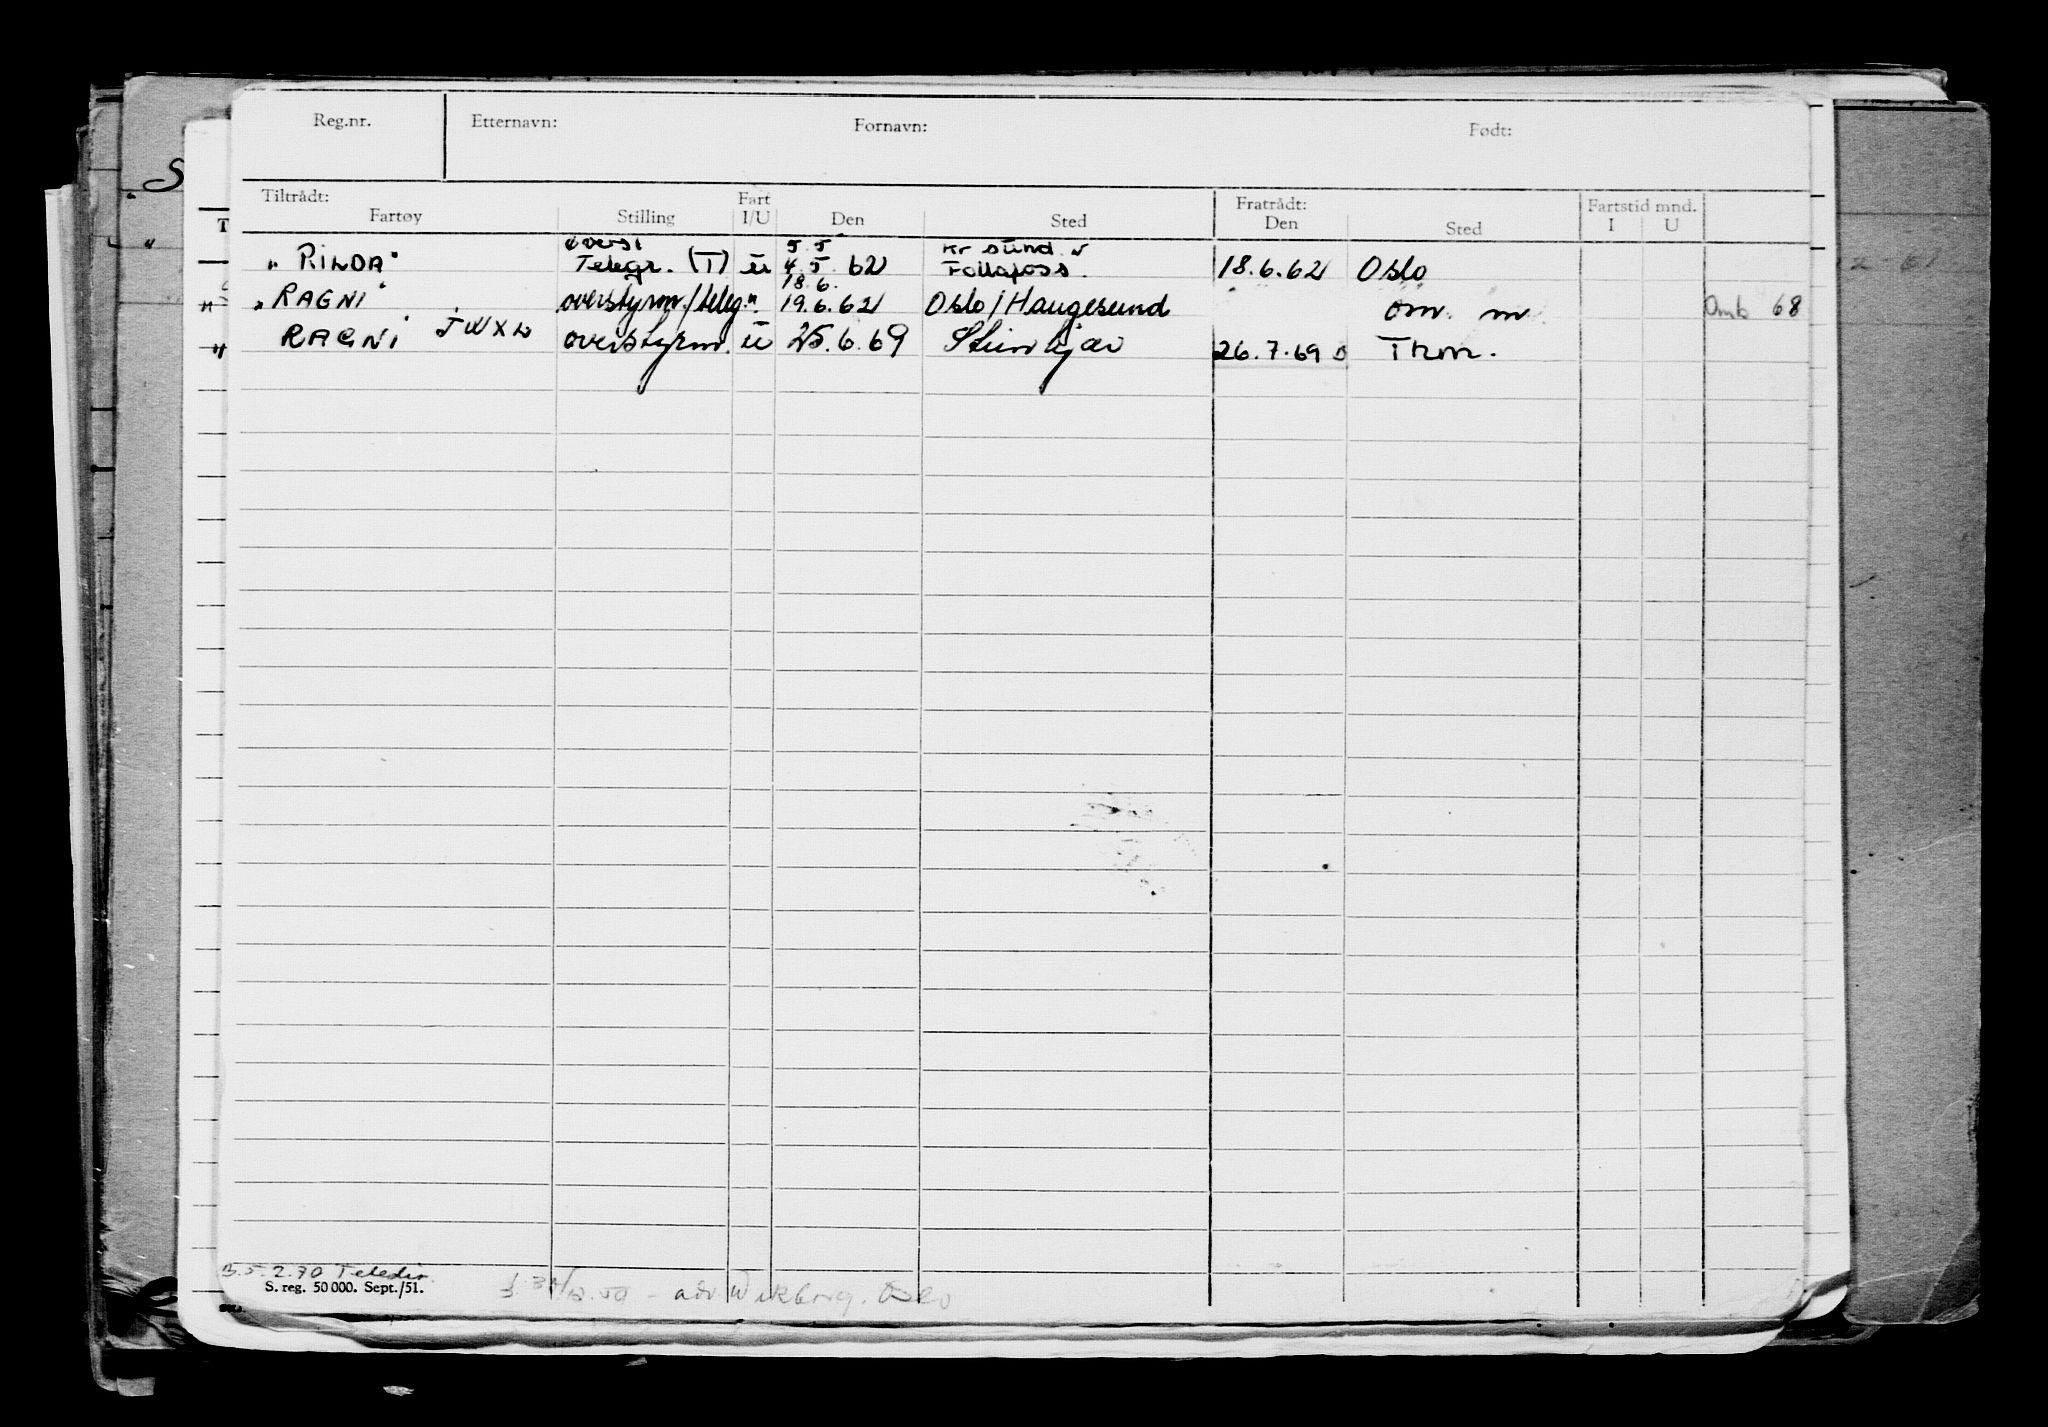 Reg.nr. Etternavn: Fornavn: Født:
Tiltrådt: Fart Fratrådt: Fartstid mnd.
Fartøy Stilling I/U Den Sted Den Sted I U
overst 5.5 Kr sund N
"RINDA" Telegr. (T) U 4.5. 62 Follafoss. 18.6.62 Oslo
18.6.
"RAGNI" overstyrm./teleg. " 19.6.62 Oslo/Haugesund om. m Omb 68
" RAGNI JWXW overstyrm. U 25.6.69 Steinkjær 26.7.69 Trm.
5.2.70 Teledir.
S. reg. 50 000. Sept./51.
adv. Wikborg. Oslo